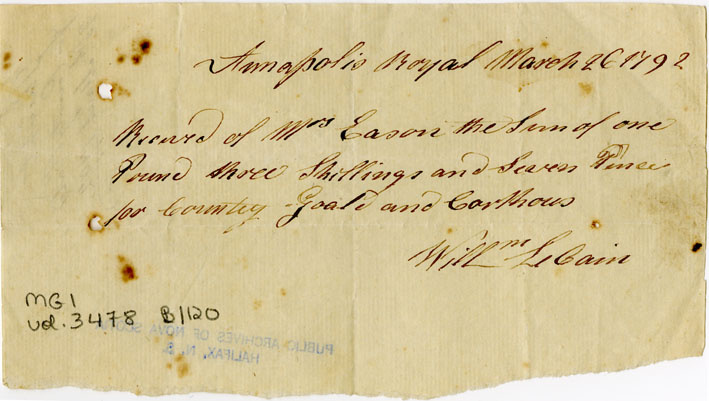 Annapolis Royal March 26 1792
Recard of Mrs Eason the Sum of one
Pound three Shillings and Seven Pence
for Country Goald and Corthous
Willm LeCain
MG 1
vol. 3478 B/120
PUBLIC ARCHIVES OF NOVA SCOTIA
HALIFAX, N. S.